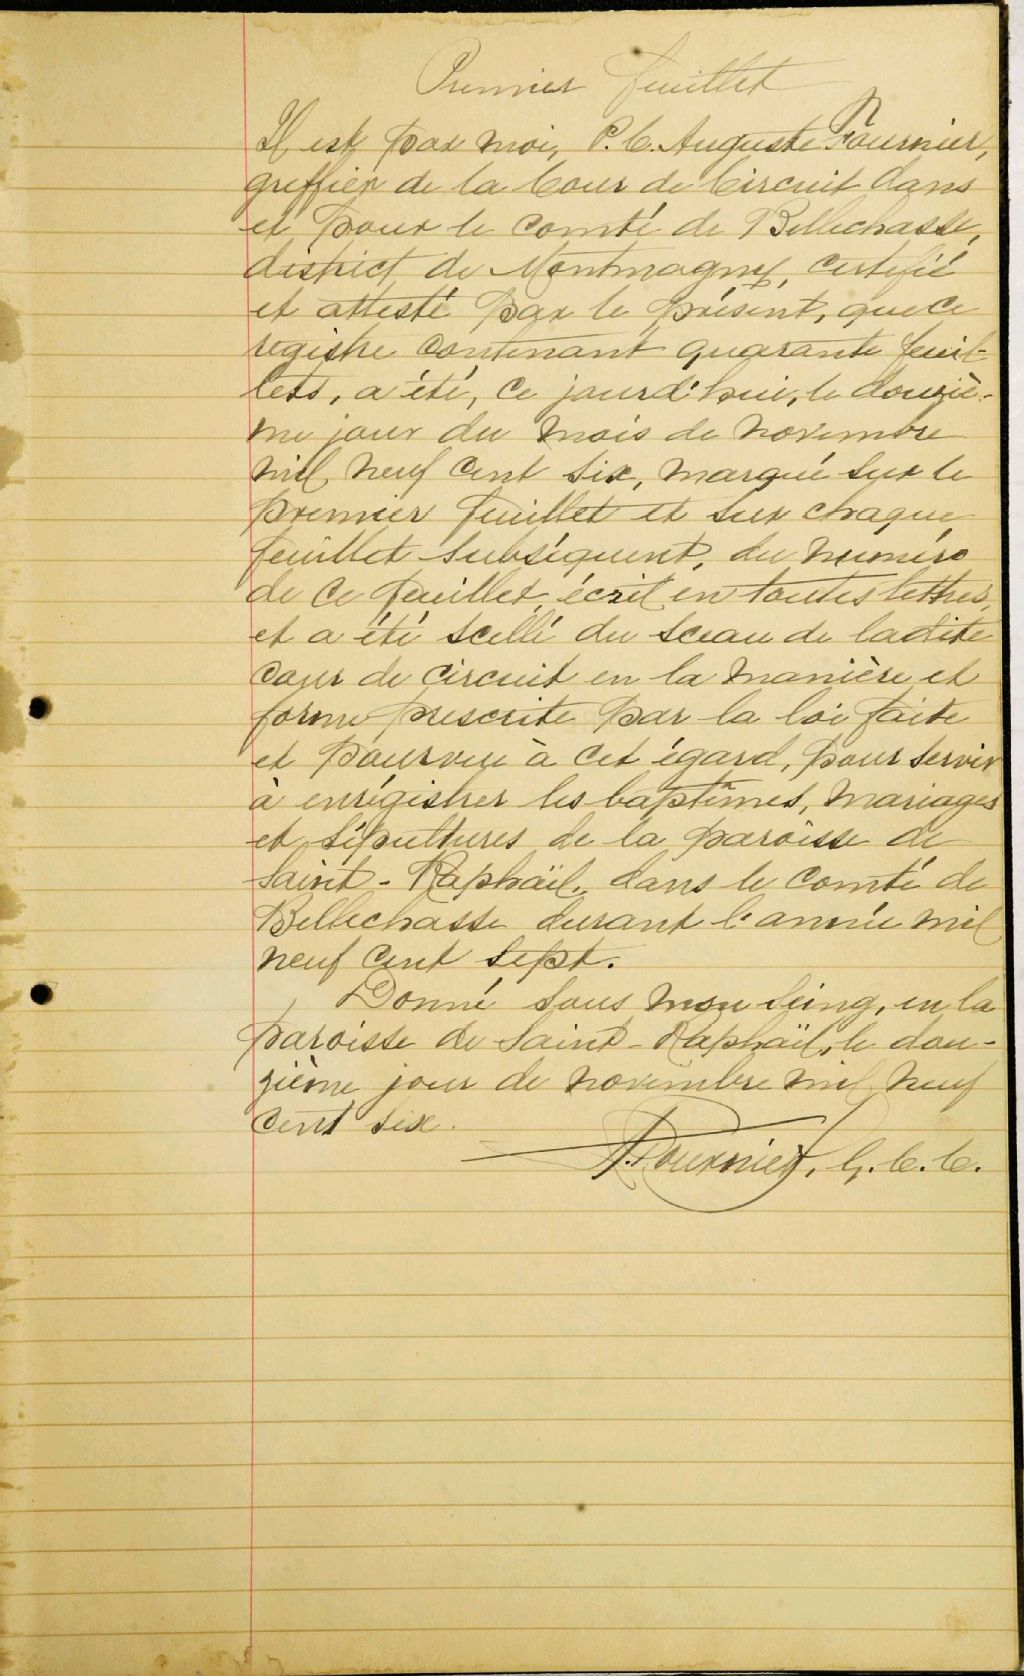 Premier feuillet
Il est par moi, P. C. Auguste Fournier,
greffier de la Cour de Circuit dans
et pour le comté de Bellechasse,
district de Montmagny, certifié
et attesté par le présent, que ce
registre contenant quarante feuil-
lets, a été, ce jourd'hui, le douziè-
me jour du mois de novembre
mil neuf cent six, marqué sur le
premier feuillet et sur chaque
feuillet subséquent, du numéro
de ce feuillet écrit en toutes lettres,
et a été scellé du sceau de ladite
cour de circuit en la manière et
forme prescrite par la loi faite
et pourvue à cet égard, pour servir
à enrégistrer les baptêmes, mariages
et sépultures de la paroisse de
Saint-Raphaël, dans le comté de
Bellechasse durant l'année mil
neuf cent sept.
Donné sous mon seing, en la
paroisse de Saint-Raphaël, le dou-
zième jour de novembre mil neuf
cent six.
A. Fournier, G. C. C.